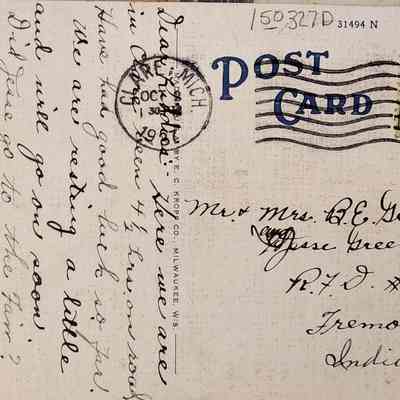 150,327D 31494 N
POST
CARD
CLARE, MICH.
OCT
30
19
Dear Here we are
in Clare - been 4½ hrs. on road
Have had good luck so far.
We are resting a little
and will go on soon.
Did Jesse go to the Fair?
BY E. C. KROPP CO., MILWAUKEE, WIS.
Mr. & Mrs. B.E. G
Jesse Gree
R.F.D. #
Fremo
Indi